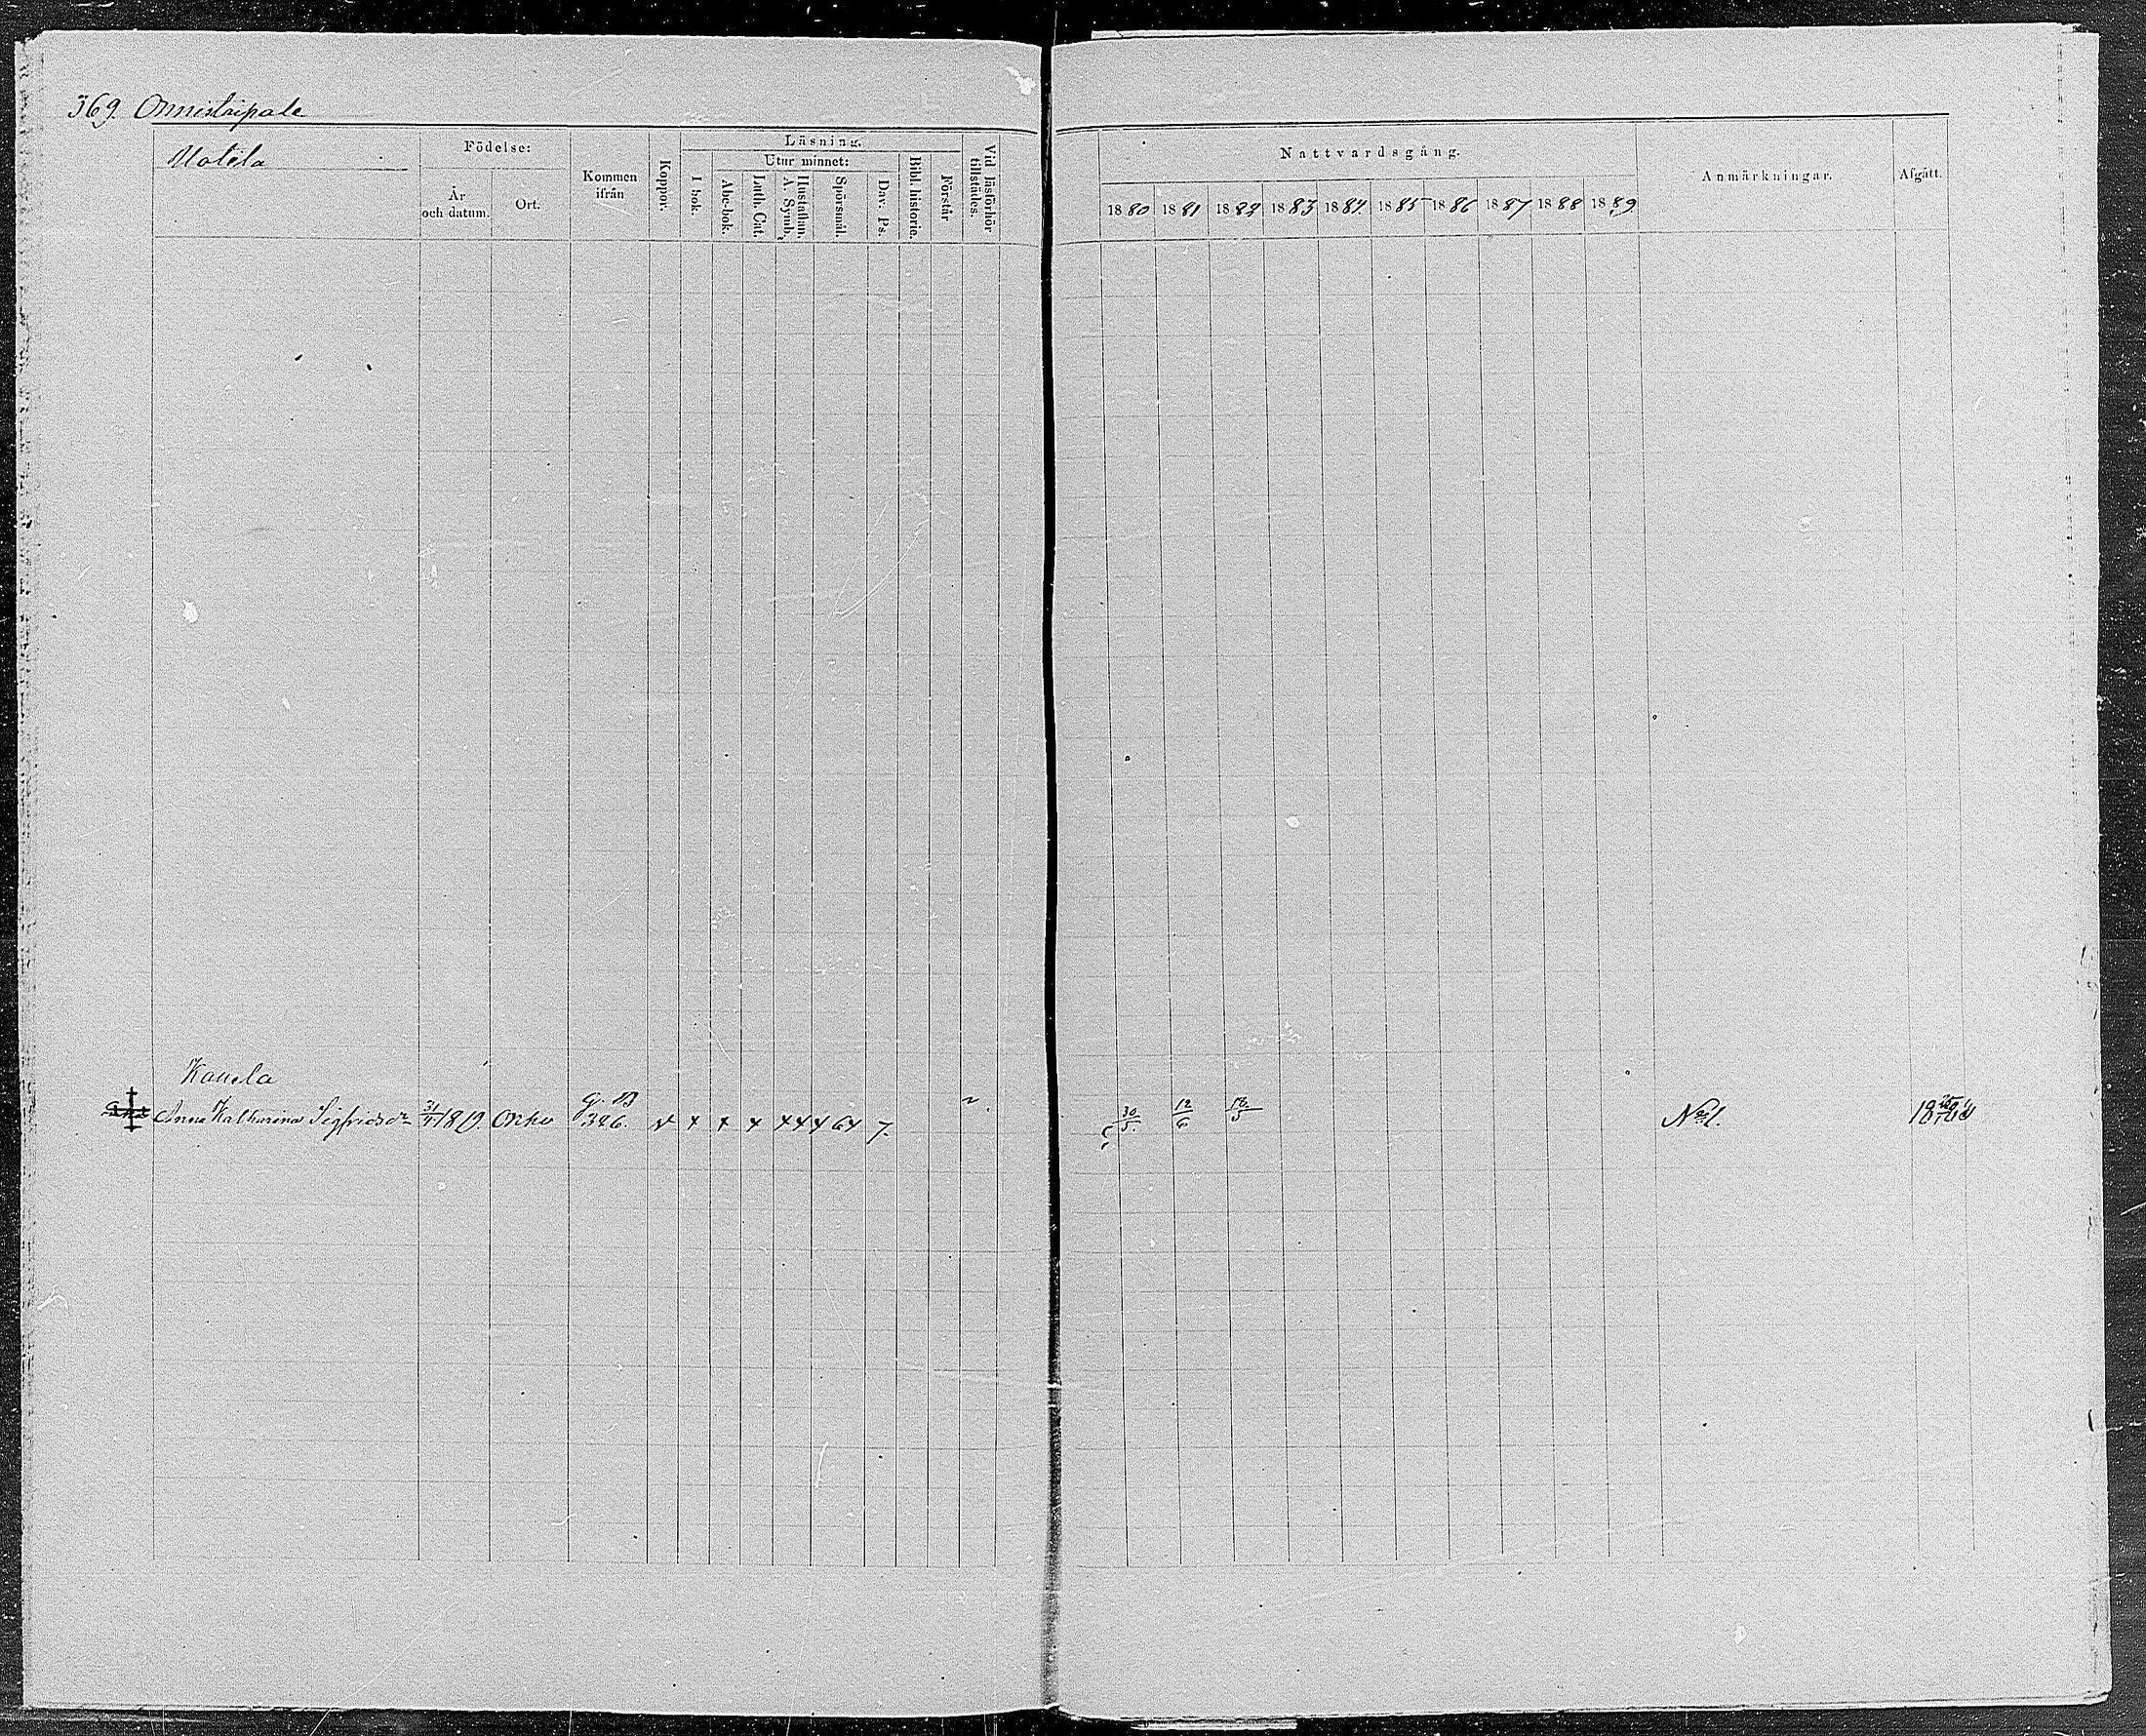 369.
Motela
Födelse:
År och datum.
Ort.
Kommen ifrån
Koppor.
Läsning.
I bok.
Utur minnet:
Abc-bok.
Luth. Cat.
Hustaflan. A. Symb.
Spörsmål.
Dav. Ps.
Bibl. historie.
Förstår
Vid läsförhör tillstädes.
Nattvardsgång.
1880 1881 1882 1883 1884 1885 1886 1887 1888 1889
Anmärkningar.
Afgått.
Kauela
Anna Katharina Sigfridsdr 31/7 1810 g. B 346. x x x x x x x 64 7. 30/5. 12/6. 18/5